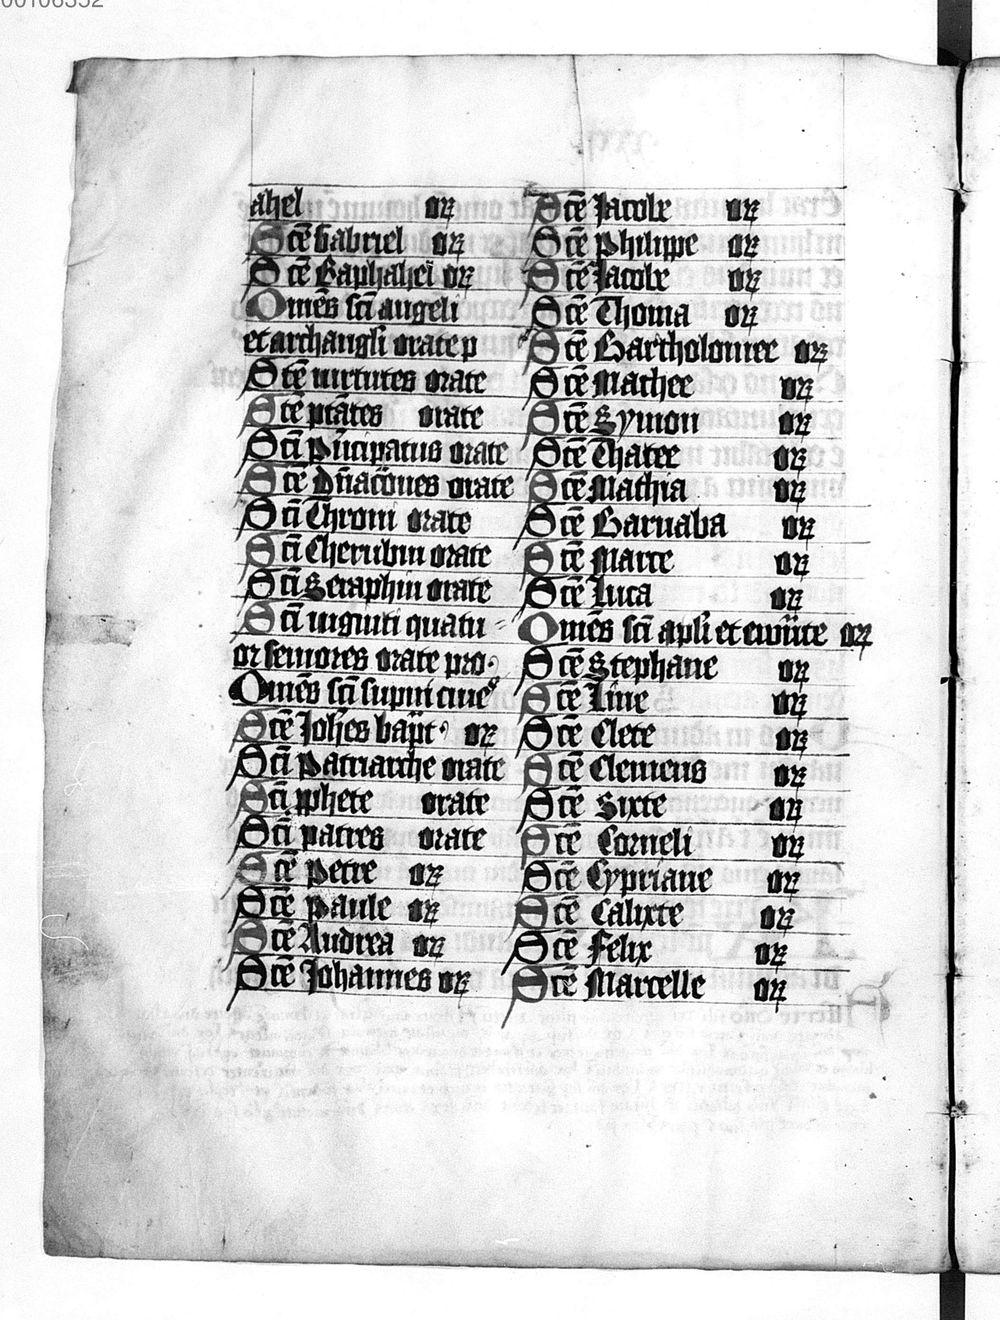 ahel oꝝ
Scē Gabriel oꝝ
Scē Raphahel oꝝ
Omēs sc̄i angeli
et archangl̄i orate p
Scē uirtutes orate
Scē ptātes orate
Sc̄i p̄ncipatus orate
Scē Dn̄acōnes orate
Sc̄i Throni orate
Sc̄i Cherubin orate
Sc̄i Seraphin orate
Sc̄i uiginti quatu
or seniores orate pro
Omēs sc̄i supni ciues
Scē Joh̄es bapt oꝝ
Sc̄i Patriarche orate
Sc̄i pphete orate
Sc̄i patres orate
Scē Petre oꝝ
Scē Paule oꝝ
Scē Andrea oꝝ
Scē Johannes oꝝ
Scē Jacobe oꝝ
Scē Philippe oꝝ
Scē Jacobe oꝝ
Scē Thoma oꝝ
Scē Bartholomee oꝝ
Scē Mathee oꝝ
Scē Symon oꝝ
Scē Thatee oꝝ
Scē Mathia oꝝ
Scē Barnaba oꝝ
Scē Marce oꝝ
Scē Luca oꝝ
Omēs sc̄i apl̄i et ewn̄te oꝝ
Scē Stephane oꝝ
Scē Line oꝝ
Scē Clete oꝝ
Scē Clemens oꝝ
Scē Sixte oꝝ
Scē Corneli oꝝ
Scē Cypriane oꝝ
Scē Calixte oꝝ
Scē Felix oꝝ
Scē Marcelle oꝝ